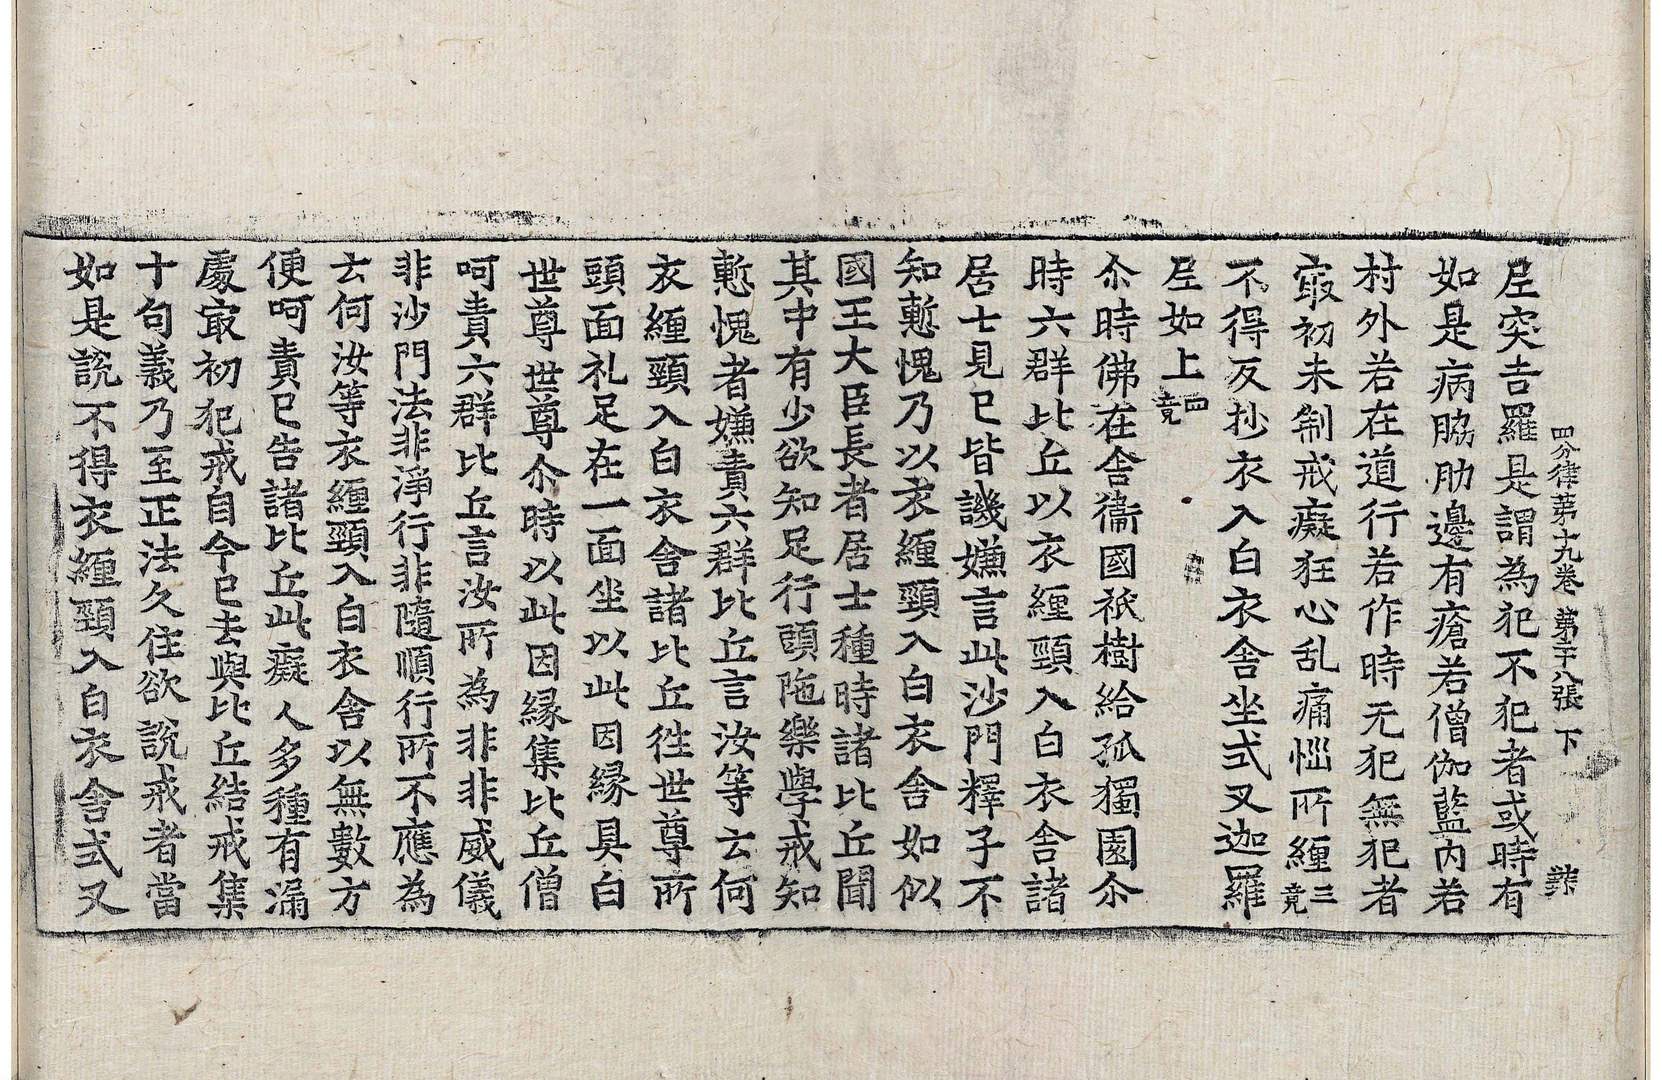 四分律苐十九卷 第二十八張 下
尼突吉羅是謂為犯不犯者或時有
如是病脇肋邊有瘡若僧伽藍內若
村外若在道行若作時无犯無犯者
㝡初未制戒癡狂心乱痛惱所纏三竟
不得反抄衣入白衣舍坐式叉迦羅
尼如上四竟
尒時佛在舍衛國祇樹給孤獨園尒
時六群比丘以衣纏頸入白衣舍諸
居士見已皆譏嫌言此沙門釋子不
知慙愧乃以衣纏頸入白衣舍如似
國王大臣長者居士種時諸比丘聞
其中有少欲知足行頭陁樂學戒知
慙愧者嫌責六群比丘言汝等云何
衣纏頸入白衣舍諸比丘徃世尊所
頭面礼足在一面坐以此因緣具白
世尊世尊尒時以此因緣集比丘僧
呵責六群比丘言汝所為非非威儀
非沙門法非淨行非隨順行所不應為
云何汝等衣纏頸入白衣舍以無數方
便呵責已告諸比丘此癡人多種有漏
處㝡初犯戒自今已去與比丘結戒集
十句義乃至正法久住欲說戒者當
如是說不得衣纏頸入白衣舍式叉